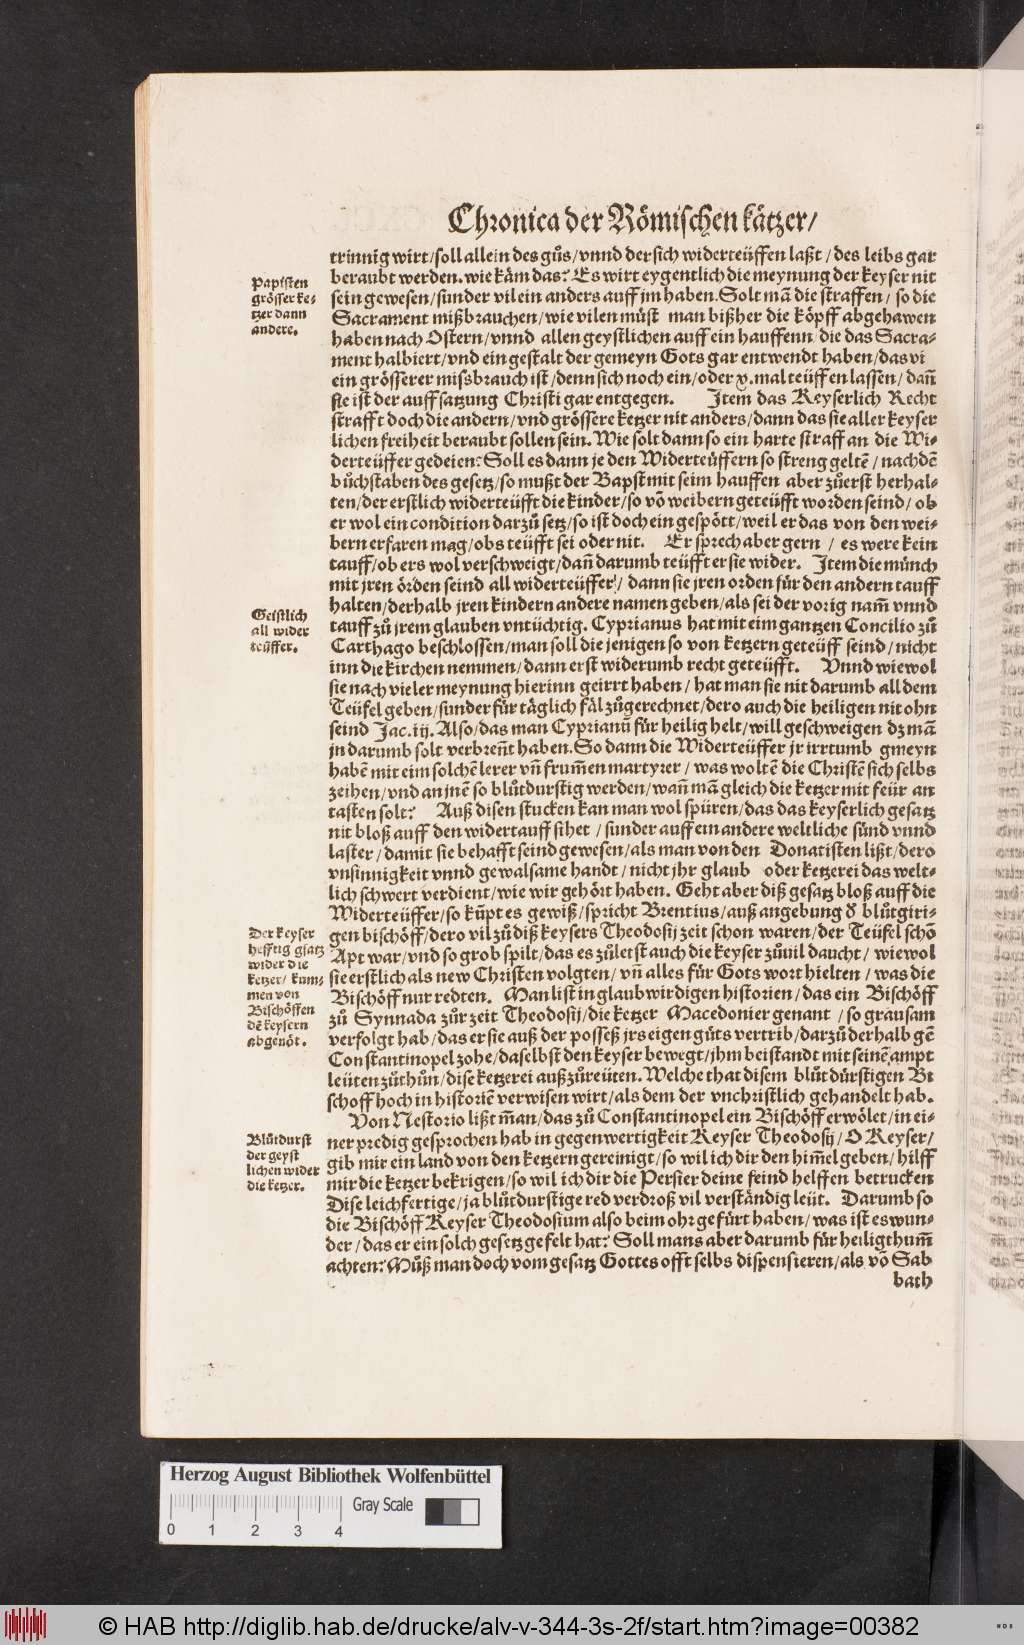 Chronica der Römischen kätzer/
trinnig wirt/soll allein des gůs/vnnd der sich widerteüffen laßt/des leibs gar
beraubt werden.wie käm das? Es wirt eygentlich die meynung der keyser nit
sein gewesen/sunder vil ein anders auff jm haben.Solt mā die straffen/ so die
Sacrament mißbrauchen/wie vilen můst man bißher die köpff abgehawen
haben nach Ostern/vnnd allen geystlichen auff ein hauffenn/die das Sacra-
ment halbiert/vnd ein gestalt der gemeyn Gots gar entwendt haben/das vi
ein grösserer missbrauch ist/denn sich noch ein/oder x.mal teüffen lassen/dañ
sie ist der auffsatzung Christi gar entgegen. Item das Keyserlich Recht
strafft doch die andern/vnd grössere ketzer nit anders/dann das sie aller keyser
lichen freiheit beraubt sollen sein.Wie solt dann so ein harte straff an die Wi-
derteüffer gedeien? Soll es dann je den Widerteüffern so streng geltē/nachdē
bůchstaben des gesetz/so mußt der Bapst mit seim hauffen aber zůerst herhal-
ten/der erstlich widerteüfft die kinder/so vō weibern geteüfft worden seind/ ob
er wol ein condition darzů setz/so ist doch ein gespött/weil er das von den wei-
bern erfaren mag/obs teüfft sei oder nit. Er sprech aber gern / es were kein
tauff/ob ers wol verschweigt/dañ darumb teüfft er sie wider. Item die münch
mit jren örden seind all widerteüffer/ dann sie jren orden für den andern tauff
halten/derhalb jren kindern andere namen geben/als sei der vorig nam̄ vnnd
tauff zů jrem glauben vntüchtig. Cyprianus hat mit eim gantzen Concilio zů
Carthago beschlossen/man soll die jenigen so von ketzern geteüff seind/nicht
inn die kirchen nemmen/dann erst widerumb recht geteüfft. Vnnd wiewol
sie nach vieler meynung hierinn geirrt haben/ hat man sie nit darumb all dem
Teüfel geben/sunder für täglich fäl zůgerechnet/dero auch die heiligen nit ohn
seind Jac.iij. Also/das man Cyprianū für heilig helt/will geschweigen dz mā
jn darumb solt verbreñt haben.So dann die Widerteüffer jr irrtumb gmeyn
habē mit eim solchē lerer vñ frum̄en martyrer/ was woltē die Christē sich selbs
zeihen/vnd an jnē so blůtdurstig werden/wañ mā gleich die ketzer mit feür an
tasten solt? Auß disen stucken kan man wol spüren/das das keyserlich gesatz
nit bloß auff den widertauff sihet / sunder auff ein andere weltliche sünd vnnd
laster/damit sie behafft seind gewesen/als man von den Donatisten lißt/dero
vnsinnigkeit vnnd gewalsame handt/ nicht jhr glaub oder ketzerei das welt-
lich schwert verdient/wie wir gehört haben. Geht aber diß gesatz bloß auff die
Widerteüffer/so kūpt es gewiß/spricht Brentius/auß angebung d̄ blůtgiri-
gen bischöff/dero vil zů diß keysers Theodosij zeit schon waren/der Teüfel schō
Apt war/vnd so grob spilt/das es zůletst auch die keyser zůuil daucht/ wiewol
sie erstlich als new Christen volgten/ vñ alles für Gots wort hielten/was die
Bischöff nur redten. Man list in glaubwirdigen historien/das ein Bischöff
zů Synnada zůr zeit Theodosij/die ketzer Macedonier genant / so grausam
verfolgt hab/das er sie auß der posseß jrs eigen gůts vertrib/darzů derhalb gē
Constantinopel zohe/daselbst den keyser bewegt/jhm beistandt mit seinē ampt
leüten zůthůn/dise ketzerei außzůreüten.Welche that disem blůtdürstigen Bi
schoff hoch in historiē verwisen wirt/als dem der vnchristlich gehandelt hab.
Von Nestorio lißt m̄an/das zů Constantinopel ein Bischöff erwölet/in ei-
ner predig gesprochen hab in gegenwertigkeit Keyser Theodosij/O Keyser/
gib mir ein land von den ketzern gereinigt/so wil ich dir den him̄el geben/hilff
mir die ketzer bekrigen/so wil ich dir die Persier deine feind helffen betrucken
Dise leichfertige/ja blůtdurstige red verdroß vil verständig leüt. Darumb so
die Bischöff Keyser Theodosium also beim ohr gefürt haben/was ist es wun-
der/das er ein solch gesetz gefelt hat? Soll mans aber darumb für heiligthum̄
achten? Můß man doch vom gesatz Gottes offt selbs dispensieren/als vō Sab
bath
Papisten
grösser ke-
tzer dann
andere.
Geistlich
all wider
teüffer.
Der keyser
hefftig gsatz
wider die
ketzer/ kum-
men von
Bischöffen
dē keysern
abgenöt.
Blůtdurst
der geyst
lichen wider
die ketzer.
Herzog August Bibliothek Wolfenbüttel
Gray Scale
0 1 2 3 4
© HAB http://diglib.hab.de/drucke/alv-v-344-3s-2f/start.htm?image=00382